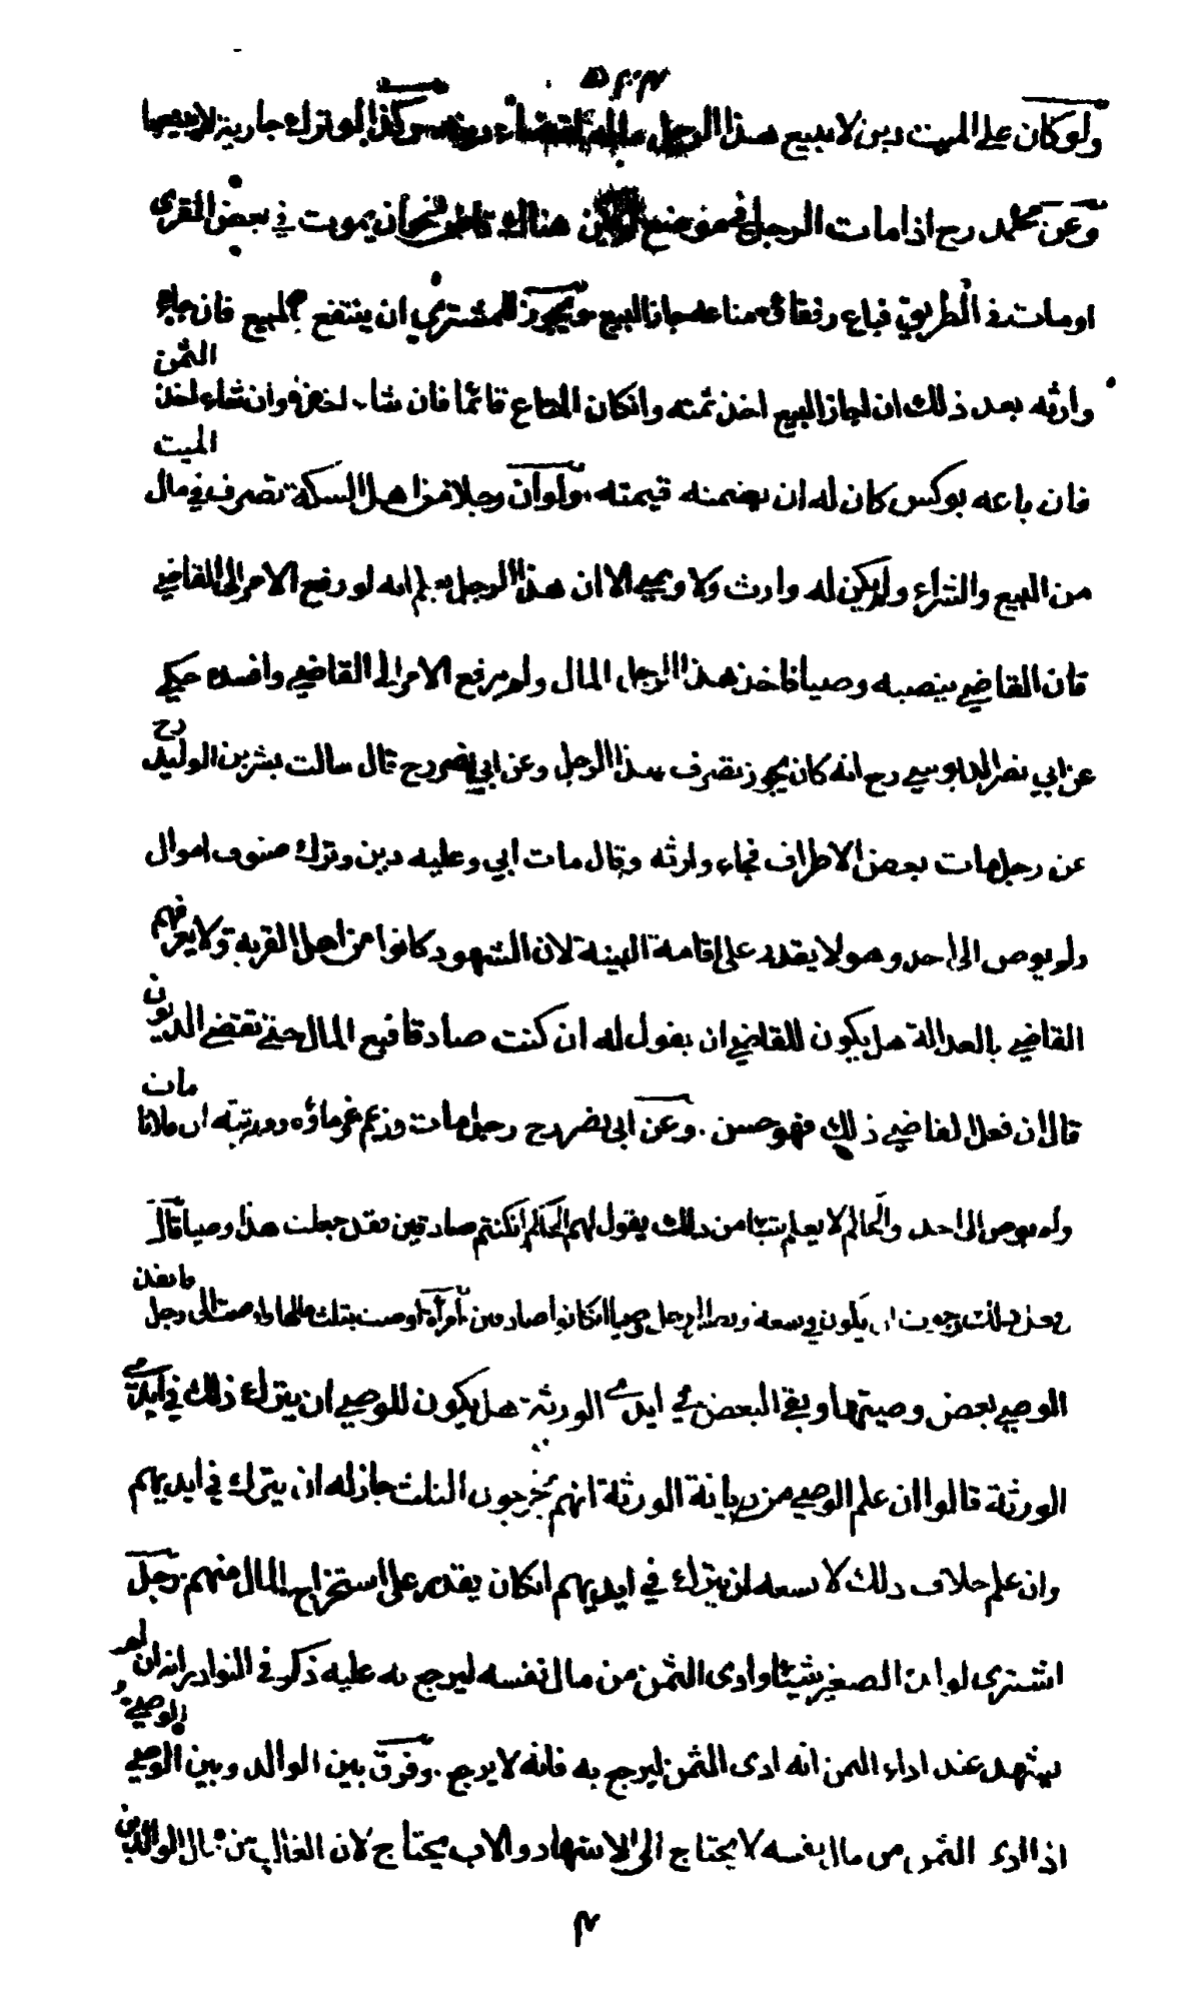 ولو كان على الميت دين لا يبيع هذا الرجل ماله لقضاء دينه وكذا لو ترك جارية لا يبيعها
وعن محمد رح اذا مات الرجل في موضع لم يكن هناك قاض نحو ان يموت في بعض القرى
او مات في الطريق فباع رفقاؤه متاعه جاز البيع ويجوز للمشتري ان ينتفع بالمبيع فان جاء
وارثه بعد ذلك ان اجاز البيع اخذ ثمنه وانكان المتاع قائما فان شاء اخذه وان شاء اخذ الثمن
فان باعه بوكس كان له ان يضمنه قيمته ولو ان رجلا من اهل السكة تصرف في مال الميت
من البيع والشراء ولم يكن له وارث ولا وصي الا ان هذا الرجل يعلم انه لو رفع الامر الى القاضي
فان القاضي ينصبه وصيا فاخذ هذا الرجل المال ولم يرفع الامر الى القاضي وافسده حكي
عن ابي نصر الدبوسي رح انه كان يجوز تصرف هذا الرجل وعن ابي نصر رح قال سالت بشر بن الوليد رح
عن رجل مات بعض الاطراف فجاء وارثه وقال مات ابي وعليه دين وترك صنوف اموال
ولم يوص الى احد وهو لا يقدر على اقامة البينة لان الشهود كانوا من اهل القرية ولا يعرفهم
القاضي بالعدالة هل يكون للقاضي ان يقول له ان كنت صادقا فبع المال حتى تقضي الديون
قال ان فعل القاضي ذلك فهو حسن وعن ابي نصر رح رجل مات وزعم غرماؤه وورثته ان فلانا مات
ولم يوص الى احد والحاكم لا يعلم شيئا من ذلك يقول لهم الحاكم ان كنتم صادقين فقد جعلت هذا وصيا قال
يكون في سعة ويصير الرجل وصيا انكانوا صادقين امرأة اوصت بثلث مالها واوصت الى رجل فانفذ
الوصي بعض وصيتها وبقي البعض في ايدي الورثة هل يكون للوصي ان يترك ذلك في ايدي
الورثة قالوا ان علم الوصي من ديانة الورثة انهم يخرجون الثلث جاز له ان يترك في ايديهم
وان علم خلاف ذلك لا يسعه ان يترك في ايديهم انكان يقدر على استخراج المال منهم رجل
اشترى لولده الصغير شيئا وادى الثمن من مال نفسه ليرجع به عليه ذكر في النوادر انه ان لم
يشهد عند اداء الثمن انه ادى الثمن ليرجع به فانه لا يرجع وفرق بين الوالد وبين الوصي الوصي
اذا ادى الثمن من مال نفسه لا يحتاج الى الاشهاد والاب يحتاج لان الغالب من حال الوالدين